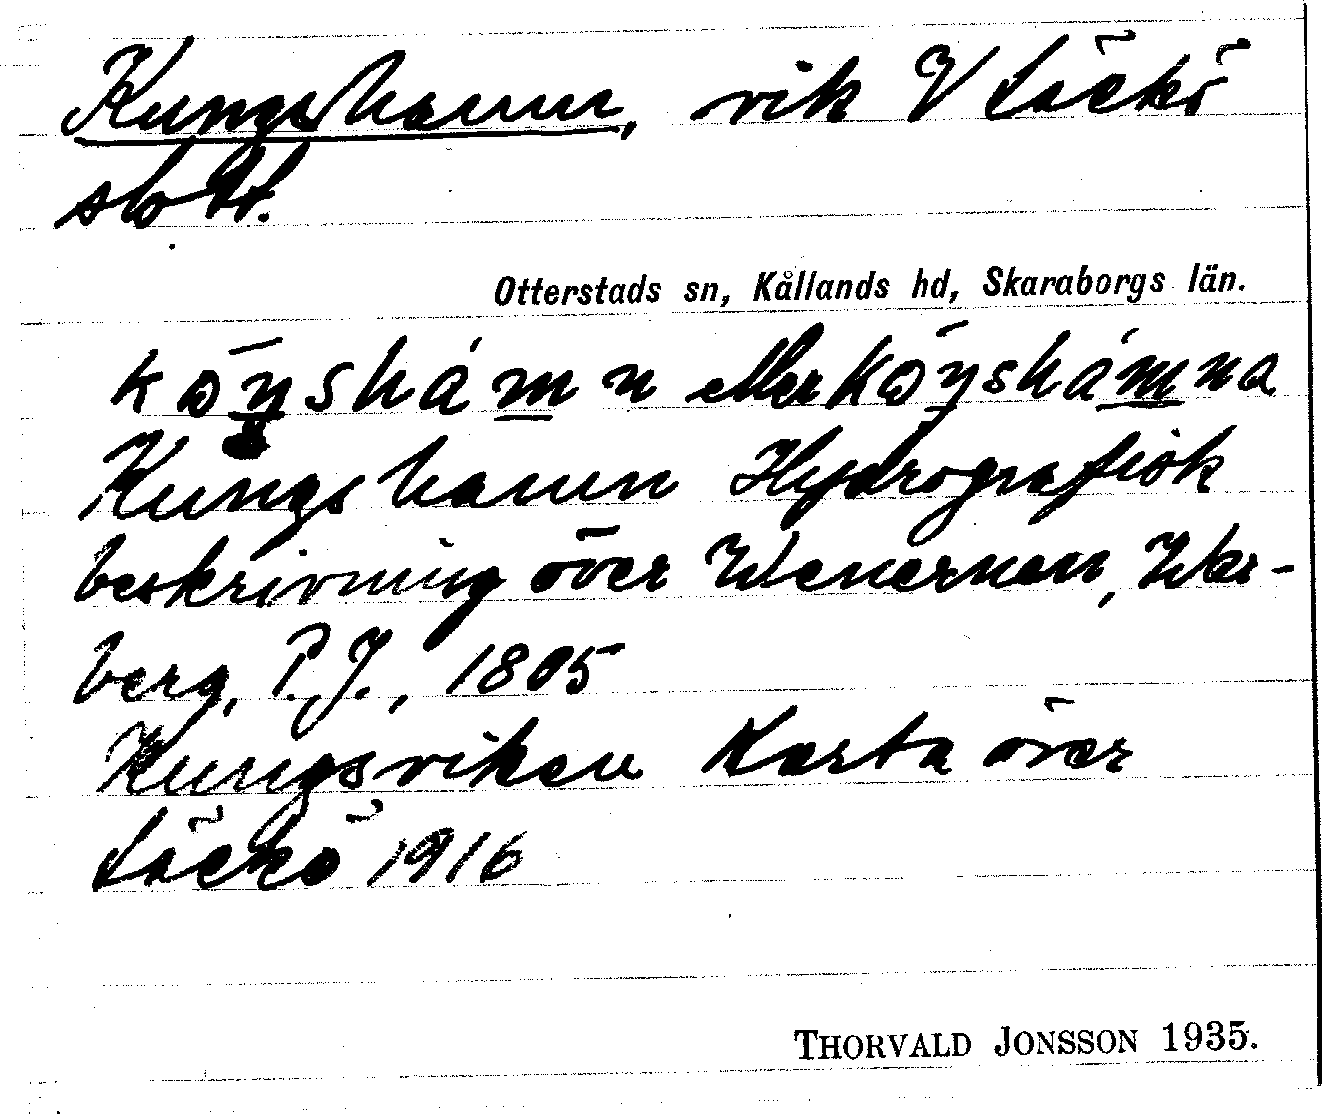 Kungshamn, vik V Läckö
slott.
Otterstads sn, Kållands hd, Skaraborgs län.
kɷŋshámn eller kɷŋshámna
Kungshamn Hydrografisk
beskrivning över Wenernen, War-
berg, P.J., 1805
Kungsviken Karta över
Läckö 1916
THORVALD JONSSON 1935.